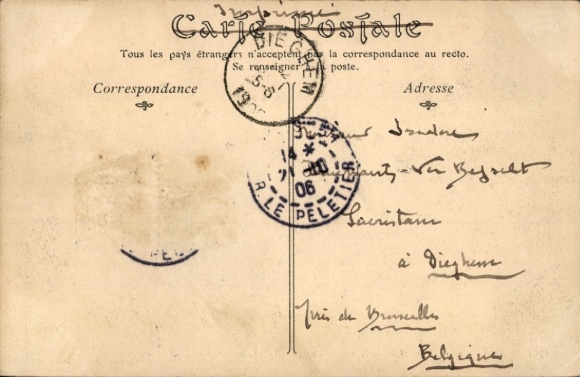 Imprimé
Carte Postale
Tous les pays étrangers n'acceptent pas la correspondance au recto.
Se renseigner à la poste.
Correspondance
Adresse
DIEGHEM
R. LE PELETIER
14 *
21
06
Monsieur Isidore
Sacristain
à Dieghem
Près de Bruxelles
Belgique